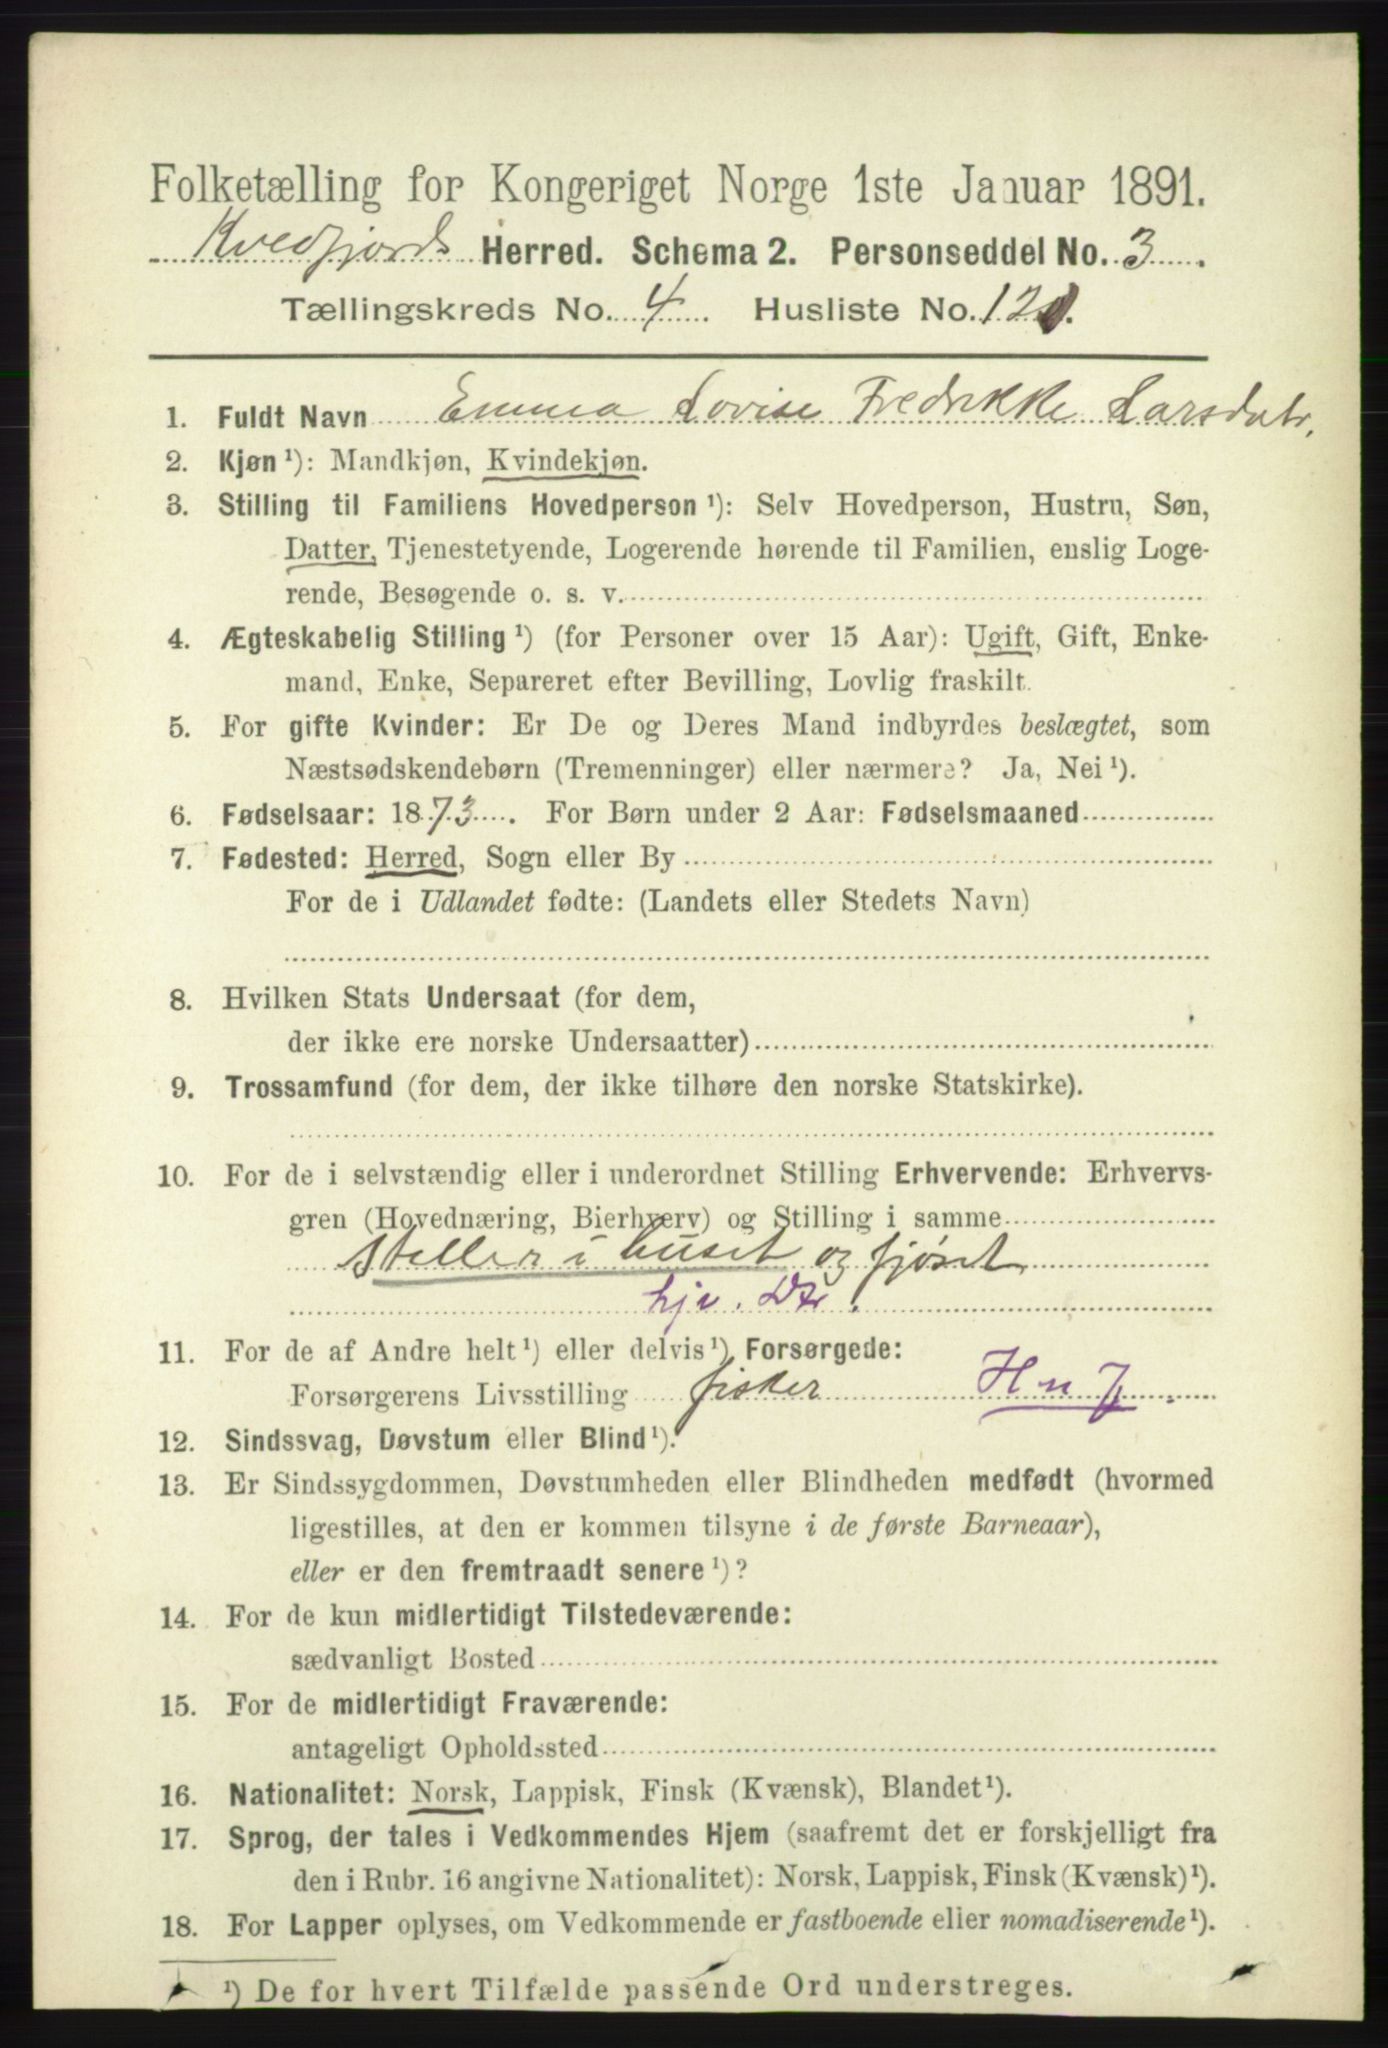 Folketælling for Kongeriget Norge 1ste Januar 1891.
Kvedfjords Herred. Schema 2. Personseddel No. 3
Tællingskreds No. 4 Husliste No. 121.
1. Fuldt Navn Emma Lovise Fredrikke Larsdatr.
2. Kjøn ¹): Mandkjøn, Kvindekjøn.
3. Stilling til Familiens Hovedperson ¹): Selv Hovedperson, Hustru, Søn,
Datter, Tjenestetyende, Logerende hørende til Familien, enslig Loge-
rende, Besøgende o. s. v.
4. Ægteskabelig Stilling ¹) (for Personer over 15 Aar): Ugift, Gift, Enke-
mand, Enke, Separeret efter Bevilling, Lovlig fraskilt.
5. For gifte Kvinder: Er De og Deres Mand indbyrdes beslægtet, som
Næstsødskendebørn (Tremenninger) eller nærmere? Ja, Nei ¹).
6. Fødselsaar: 1873. For Børn under 2 Aar: Fødselsmaaned
7. Fødested: Herred, Sogn eller By
For de i Udlandet fødte: (Landets eller Stedets Navn)
8. Hvilken Stats Undersaat (for dem,
der ikke ere norske Undersaatter)
9. Trossamfund (for dem, der ikke tilhøre den norske Statskirke).
10. For de i selvstændig eller i underordnet Stilling Erhvervende: Erhvervs-
gren (Hovednæring, Bierhverv) og Stilling i samme
steller i huset og fjøset
hjv. Dtr.
11. For de af Andre helt ¹) eller delvis ¹) Forsørgede:
Forsørgerens Livsstilling fisker
12. Sindssvag, Døvstum eller Blind ¹).
13. Er Sindssygdommen, Døvstumheden eller Blindheden medfødt (hvormed
ligestilles, at den er kommen tilsyne i de første Barneaar),
eller er den fremtraadt senere ¹)?
14. For de kun midlertidigt Tilstedeværende:
sædvanligt Bosted
15. For de midlertidigt Fraværende:
antageligt Opholdssted
16. Nationalitet: Norsk, Lappisk, Finsk (Kvænsk), Blandet ¹).
17. Sprog, der tales i Vedkommendes Hjem (saafremt det er forskjelligt fra
den i Rubr. 16 angivne Nationalitet): Norsk, Lappisk, Finsk (Kvænsk) ¹).
18. For Lapper oplyses, om Vedkommende er fastboende eller nomadiserende ¹).
¹) De for hvert Tilfælde passende Ord understreges.